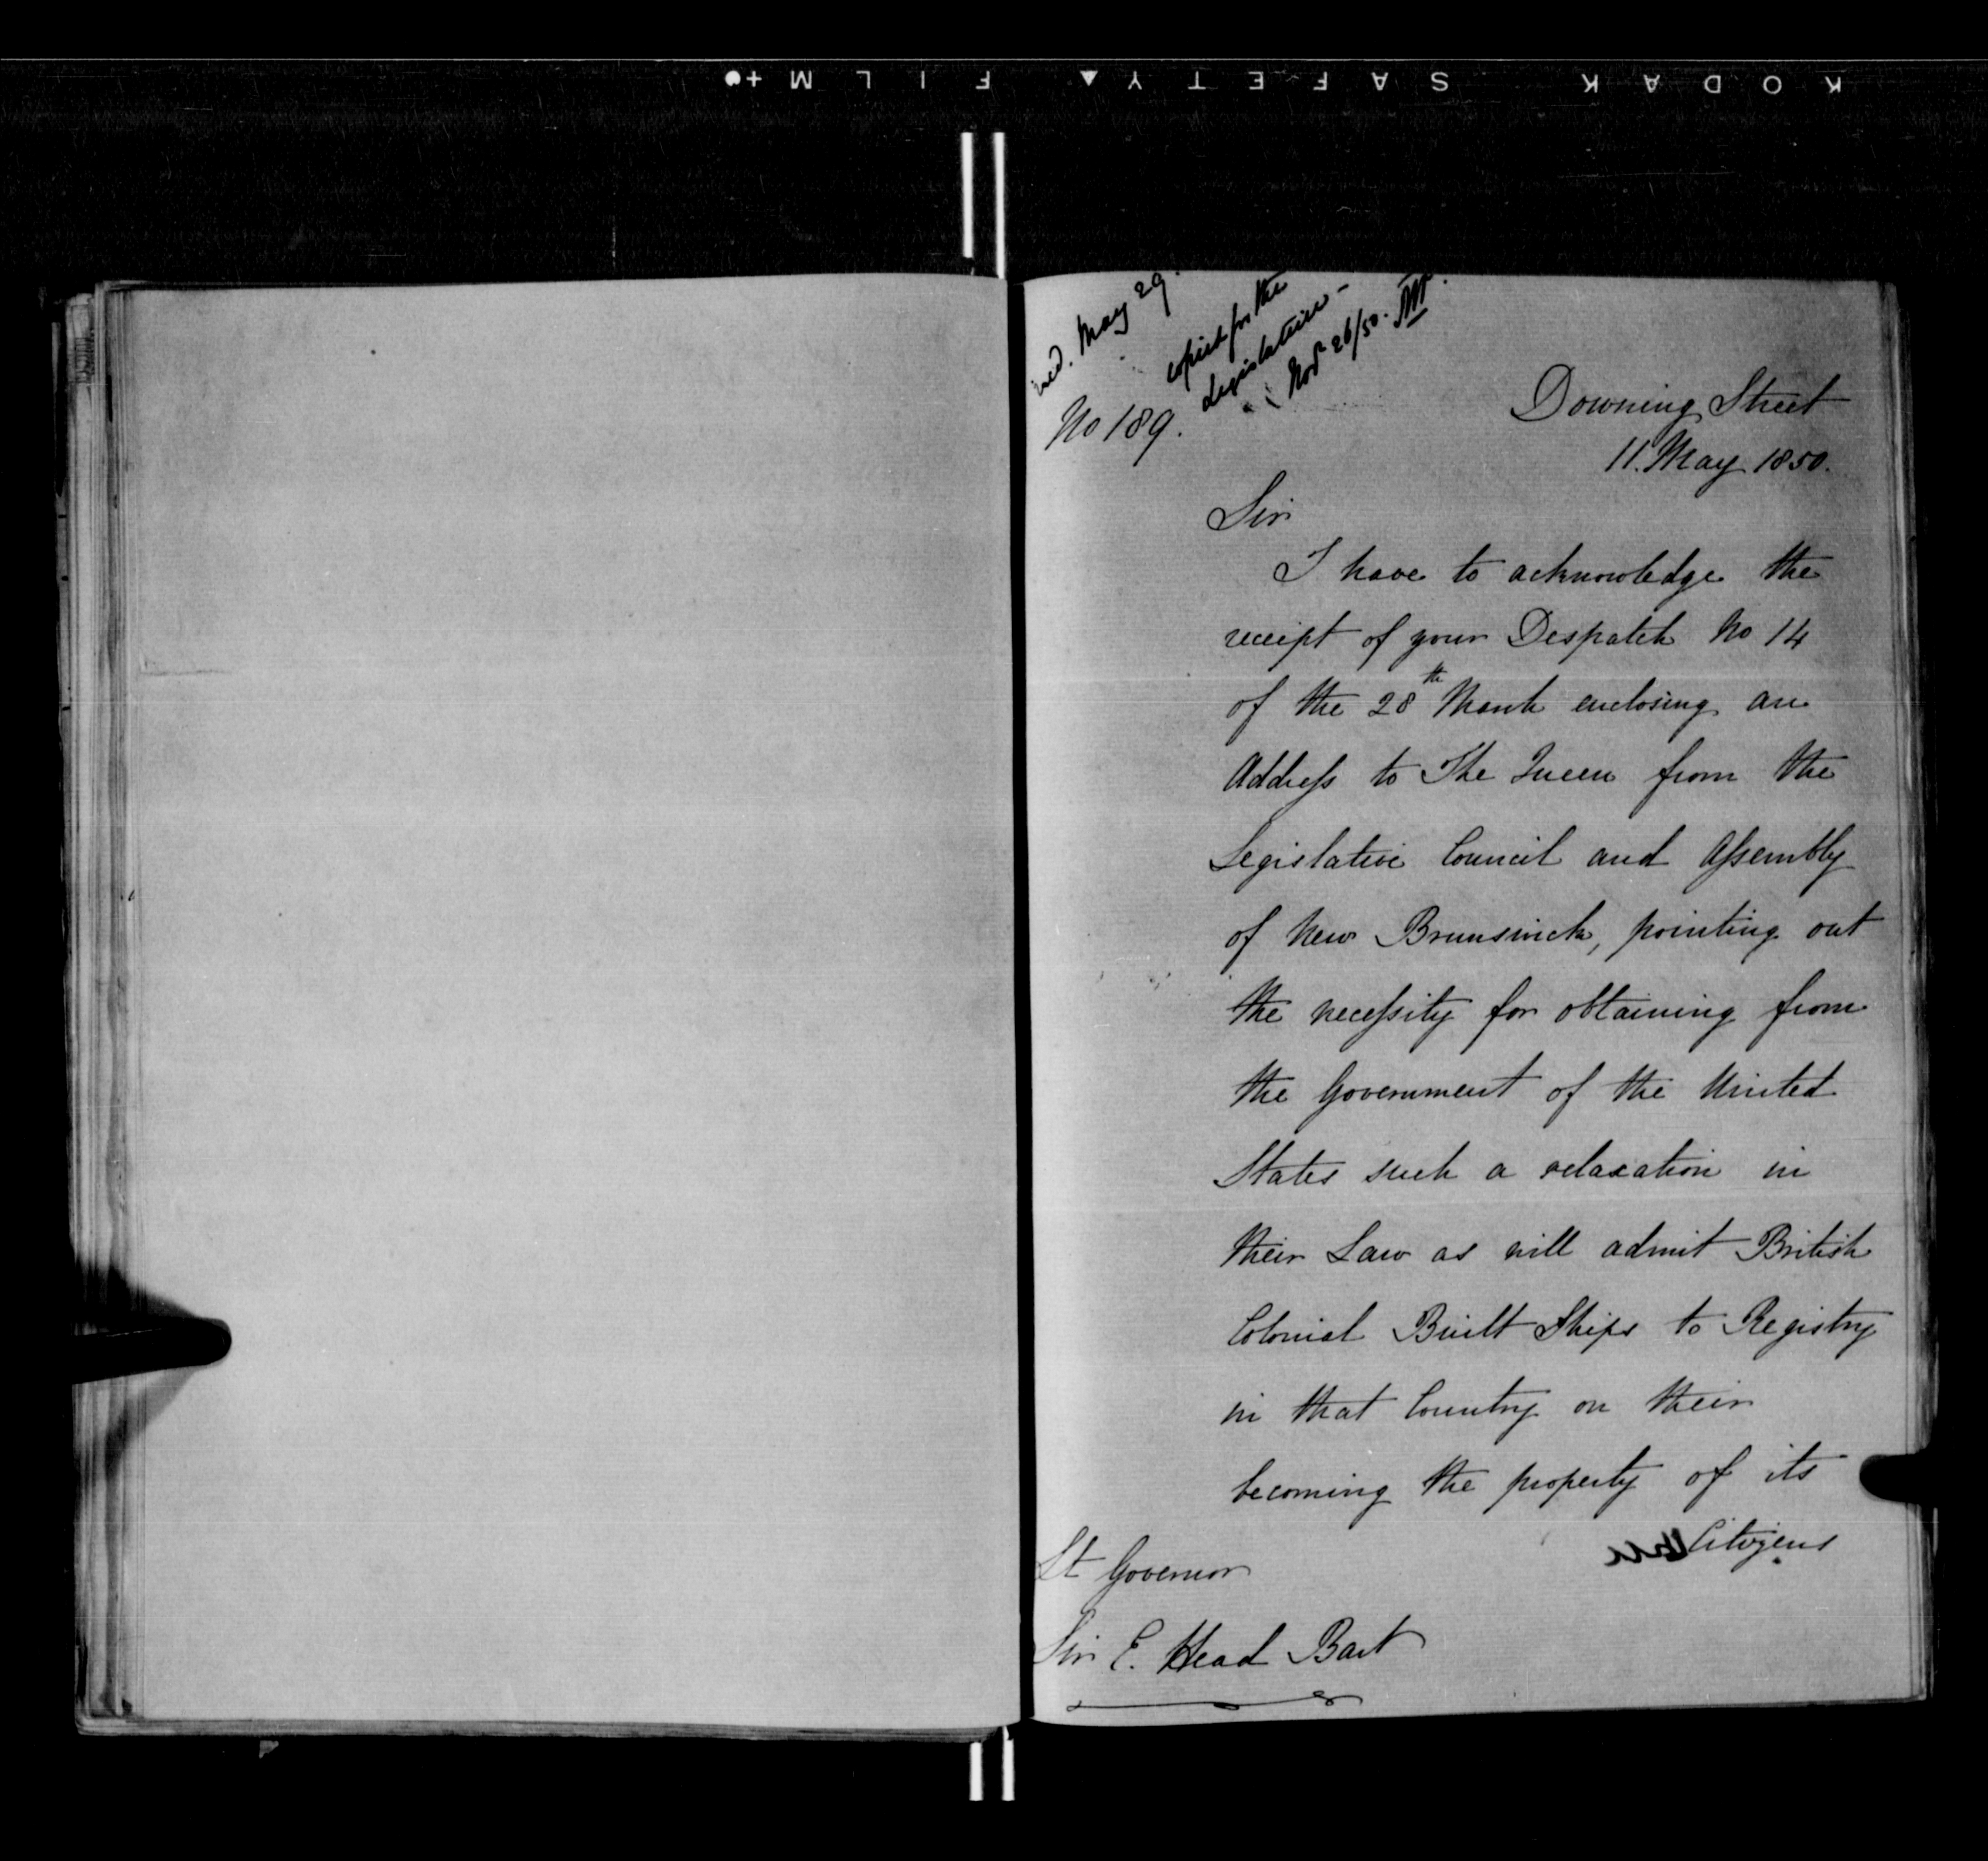 KODAK SAFETY FILM
May 29.
copied for the
Legislature -
Novr 26/50.
No 189.
Downing Street
11. May 1850.
Sir
I have to acknowledge the
receipt of your Despatch No 14
of the 28th March enclosing an
Address to The Queen from the
Legislative Council and Assembly
of New Brunswick, pointing out
the necessity for obtaining from
the Government of the United
States such a relaxation in
their Law as will admit British
Colonial Built Ships to Registry
in that Country on their
becoming the property of its
Citizens
Lt Governor
Sir E. Head Bart